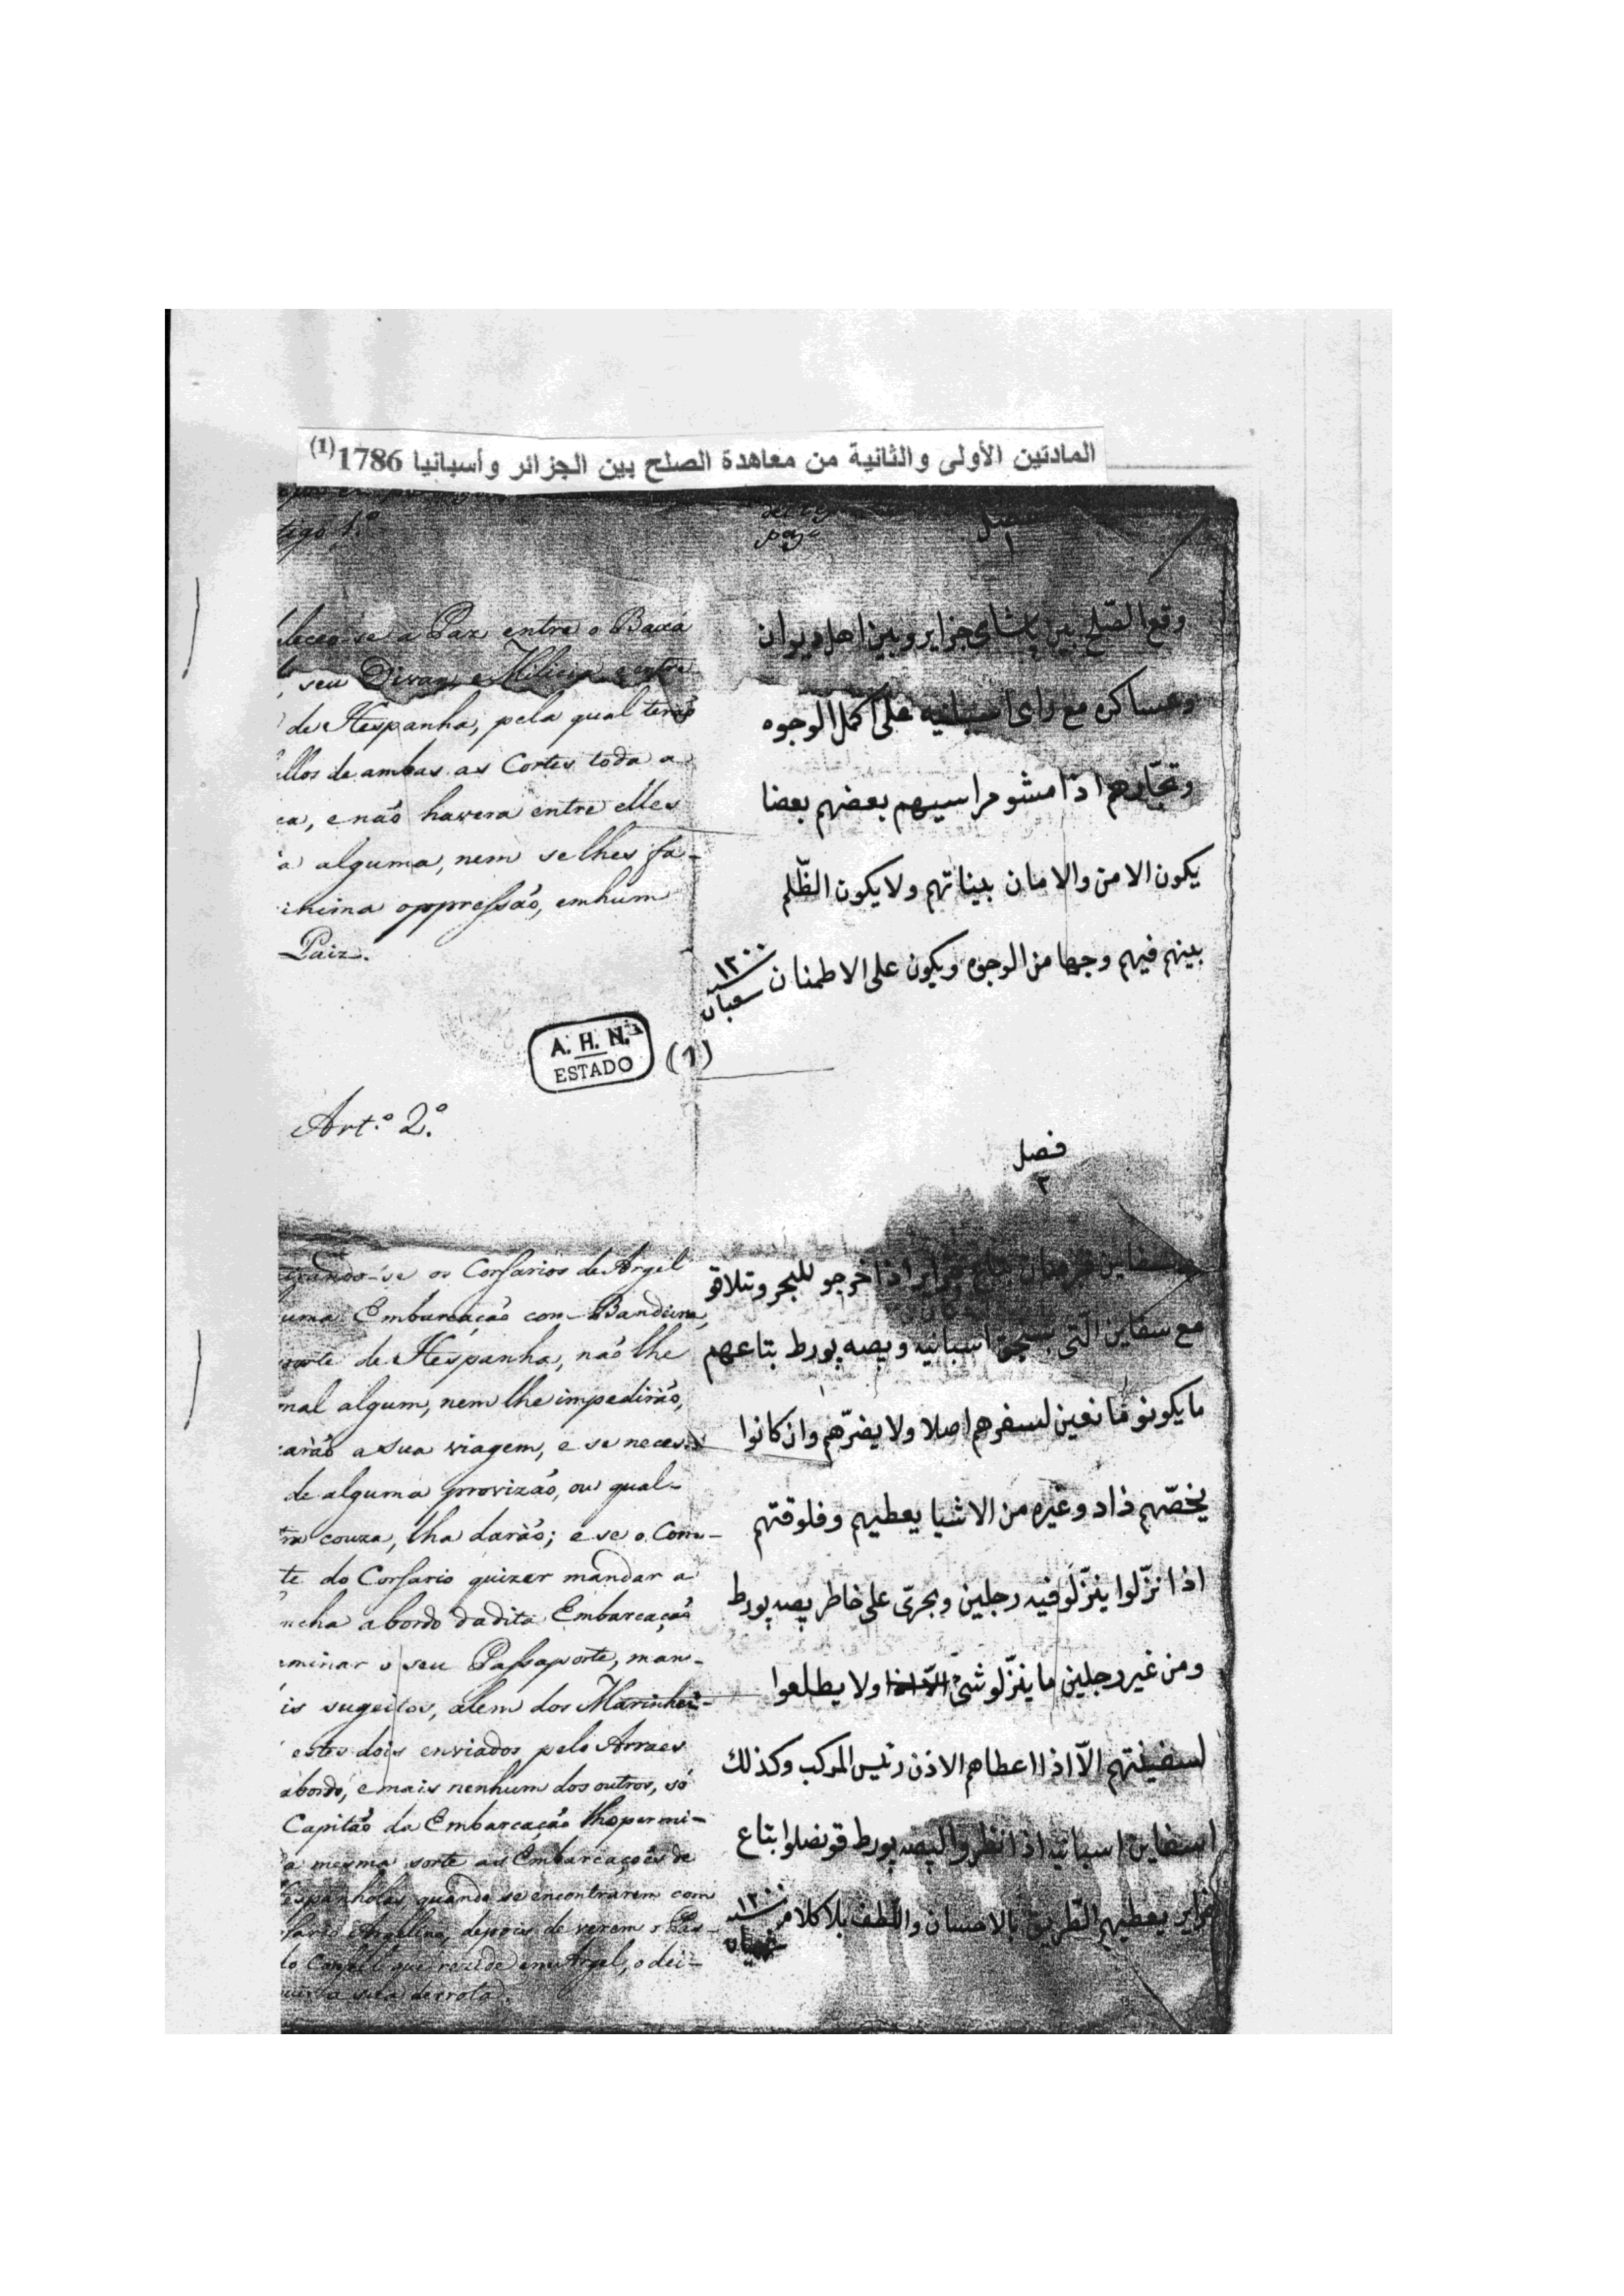 المادتين الأولى والثانية من معاهدة الصلح بين الجزائر وأسبانيا 1786(1)
tigo 1.º
فصل
١
leceo-se a Paz entre o Baxá
seu Divan, e Milicia e entre
de Hespanha, pela qual terão
llos de ambas as Cortes toda a
ca, e não havera entre elles
a alguma, nem se lhes fa-
inima oppressão, em hum
Paiz.
وقع الصّلح بين پاشاى جزاير وبين اهل ديوان
وعساكره مع راى اسبانيه على اكمل الوجوه
وتجّارهم اذا مشو مراسيهم بعضهم بعضا
يكون الامن والامان بيناتهم ولا يكون الظّلم
بينهم فيهم وجها من الوجوه ويكون على الاطمنان
١٢٠٠
سنه
شعبان
A. H. N.
ESTADO
(1)
Art.º 2.º
فصل
٢
os Corsarios de Argel
uma Embarcação com Bandeira,
de Hespanha, não lhe
mal algum, nem lhe impedirão,
arão a sua viagem, e se neces
de alguma provizão, ou qual-
ra couza, lha darão; e se o Com-
te do Corsario quizer mandar a
ncha a bordo da dita Embarcação
minar o seu Passaporte, man-
is sugeitos, alem dos Marinhei-
estes dois enviados pelo Arraes
abordo, e mais nenhum dos outros, só
Capitão da Embarcação lho permi-
a mesma sorte as Embarcações de
espanholas quando se encontrarem com
Argelino, depois de verem o Pas-
do Consul que rezide em Argel, o dei-
a sua derrota.
اذا خرجو للبحر وتتلاقو
مع سفاين الّتى بسنجق اسبانيه وبصه پورط بتاعهم
ما يكونو مانعين لسفرهم اصلا ولا يضرّهم وان كانوا
يخصّهم ذاد وغيره من الاشيا يعطيهم وفلوقتهم
اذا نزّلوا ينزّلو فيه رجلين وبحرّى على خاطر پصه پورط
ومن غير رجلين ما ينزّلو شىّ ولا يطلعوا
لسفينتهم الاّ اذا اعطاهم الاذن رئيس المركب وكذلك
اسفاين اسبانيه اذا نظروا لپصه پورط قونصلوا بتاع
جزاير يعطيهم الطّريق بالاحسان واللّطف بلا كلام
١٢٠٠
سنه
شعبان